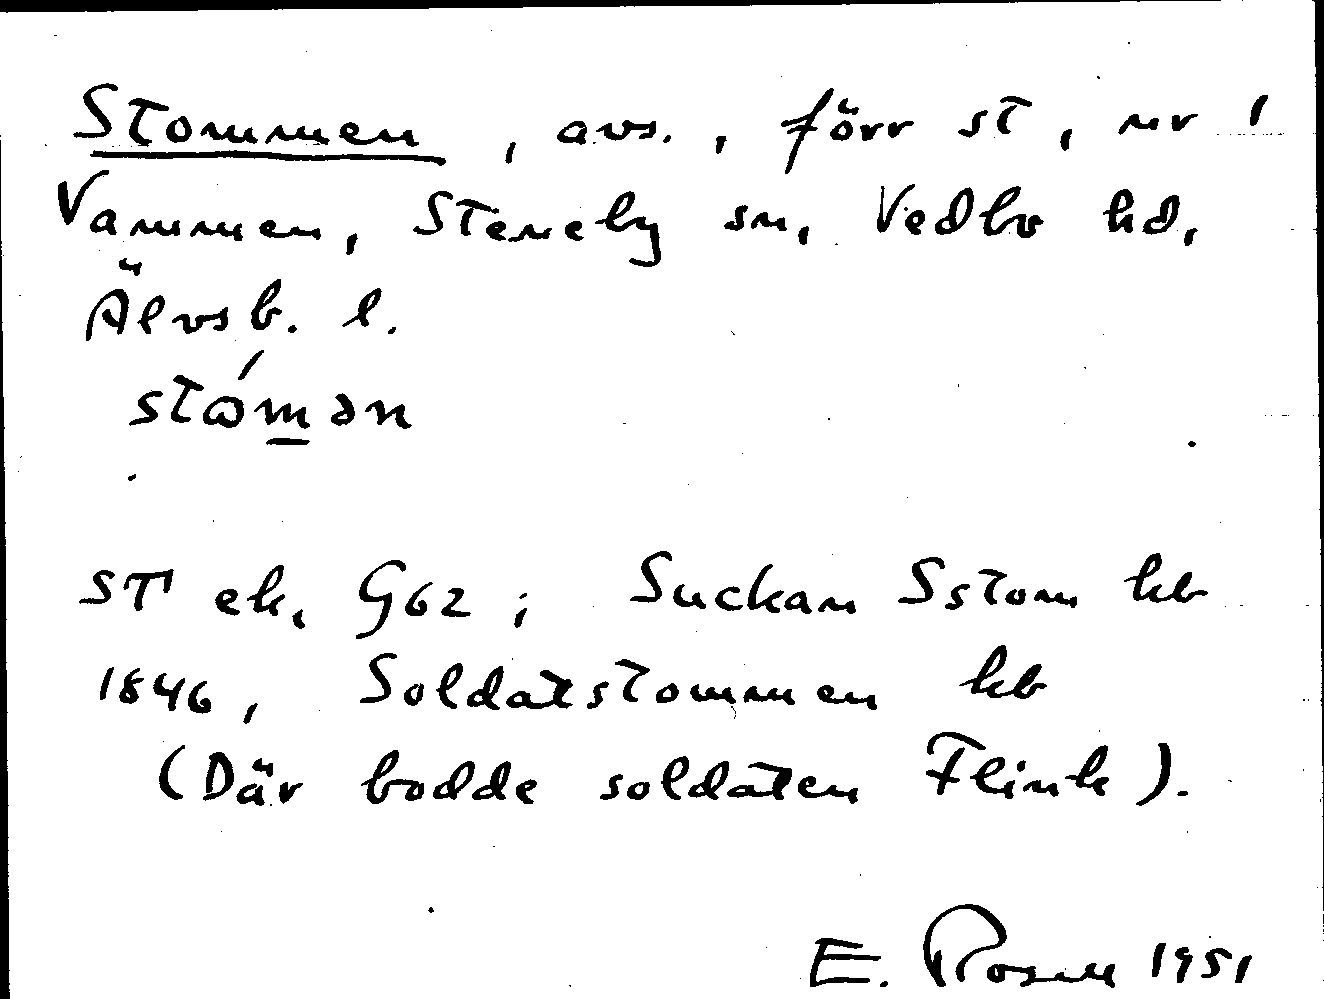 Stommen, avs., förr st, nr 1
Vammen, Steneby sn, Vedbo hd,
Älvsb. l.
stómən
ST ek. G62; Suckan Sstom kb
1846, Soldatstommen kb
(Där bodde soldaten Flink).
E. Rosén 1951